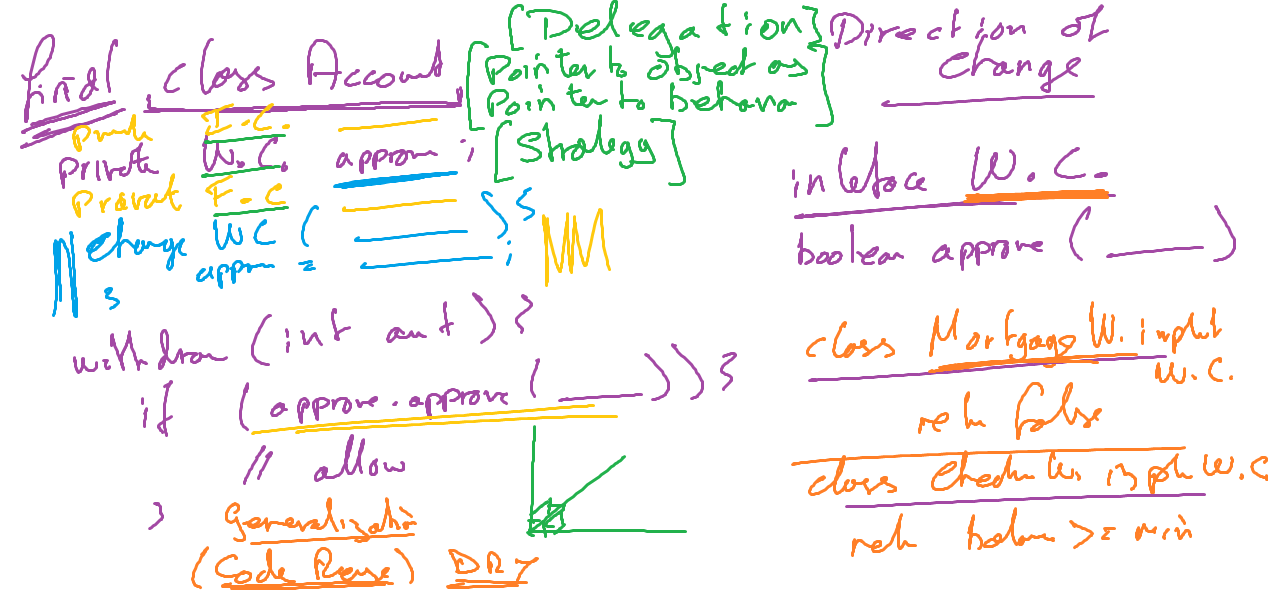 final class Account
[Delegation]
[Pointer to object as
Pointer to behavior]
[Strategy]
private I.C.
private W.C. approve ;
Privat F.C
change WC ( ) {
approve = ;
}
withdraw (int amt) {
if (approve.approve ( )) {
// allow
}
Generalization
(Code Reuse) DRY
Direction of
change
interface W.C.
boolean approve ( )
class Mortgage W. implmt
W.C.
retn false
class Checkn W. impln W.C
retn balance >= min